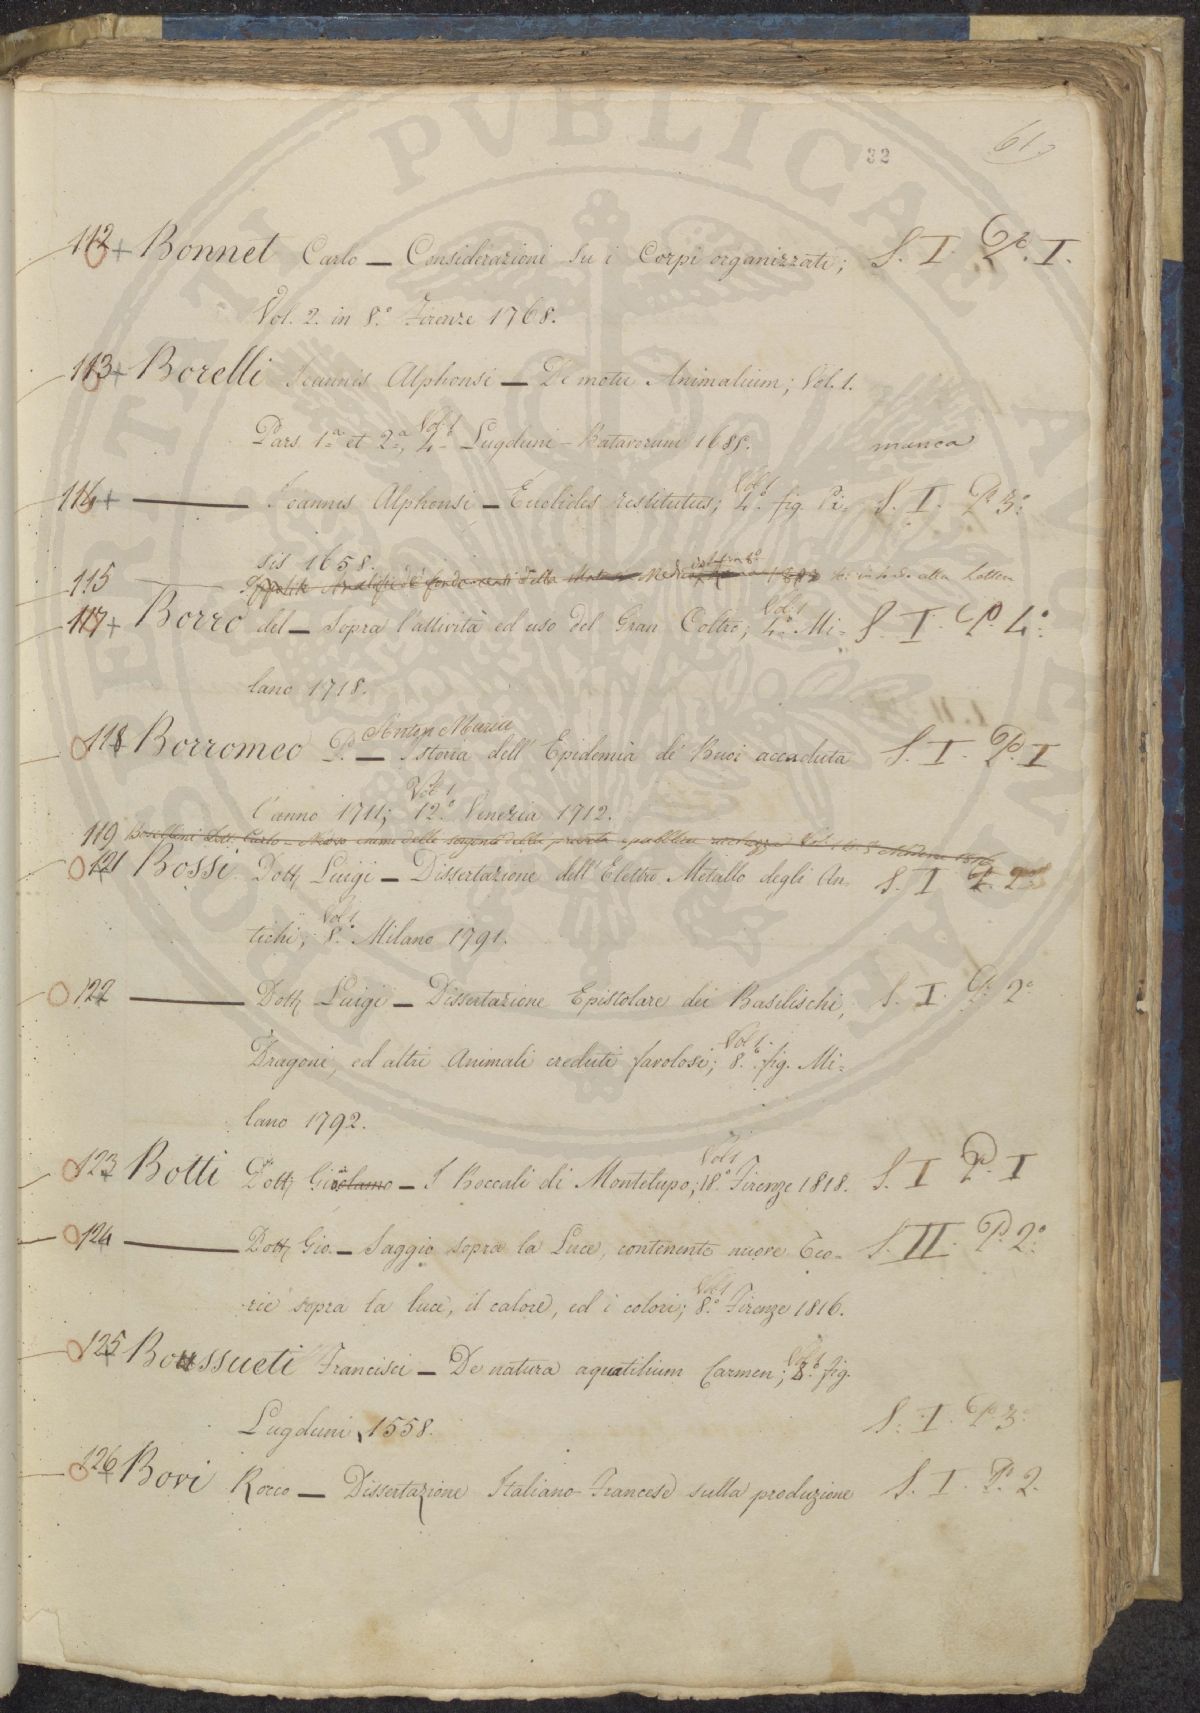 32
61
112 + Bonnet Carlo — Considerazioni su i Corpi organizzati; S. I. P. I.
Vol. 2. in 8.º Firenze 1768.
113 + Borelli Joannis Alphonsi — De motu Animalium; Vol. 1.
Pars 1.ª et 2.ª, Vol. 1 4.º Lugduni-Batavorum 1685. manca
114 + —— Joannis Alphonsi — Euclides restitutus; Vol. 1 4.º fig. Pi- S. I. P. 3.º
sis 1658.
115 —— della Materia Medica alla Lettera
117 + Borro del — Sopra l'attività ed uso del Gran Coltro; Vol. 1 4.º Mi= S. I. P. 4.º
lano 1718.
118 + Borromeo P. Anton Maria — Istoria dell' Epidemia de' Buoi accaduta S. I. P. I
l'anno 1711; Vol. 1 12.º Venezia 1712.
119 Carlo - Nuovo esame delle sorgenti della privata e pubblica ricchezza Vol. 1 Modena 1816
121 Bossi Dott. Luigi — Dissertazione dell' Elettro Metallo degli An- S. I P. 2.º
tichi; Vol 1 8.º Milano 1791.
122 —— Dott. Luigi — Dissertazione Epistolare dei Basilischi, S. I. P. 2.º
Dragoni, ed altri Animali creduti favolosi; Vol 1. 8.º fig. Mi=
lano 1792.
123 Botti Dott. Girolamo — I Boccali di Montelupo; Vol 1 18.º Firenze 1818. S. I P. I
124 —— Dott. Gio. — Saggio sopra la Luce, contenente nuove Teo- S. II. P. 2.º
rie sopra la luce, il calore, ed i colori; Vol 1 8.º Firenze 1816.
125 Boussueti Francisci — De natura aquatilium Carmen; Vol. 1 8.º fig.
Lugduni, 1558. S. I. P. 3.º
126 Bovi Rocco — Dissertazione Italiano-Francese sulla produzione S. I. P. 2.